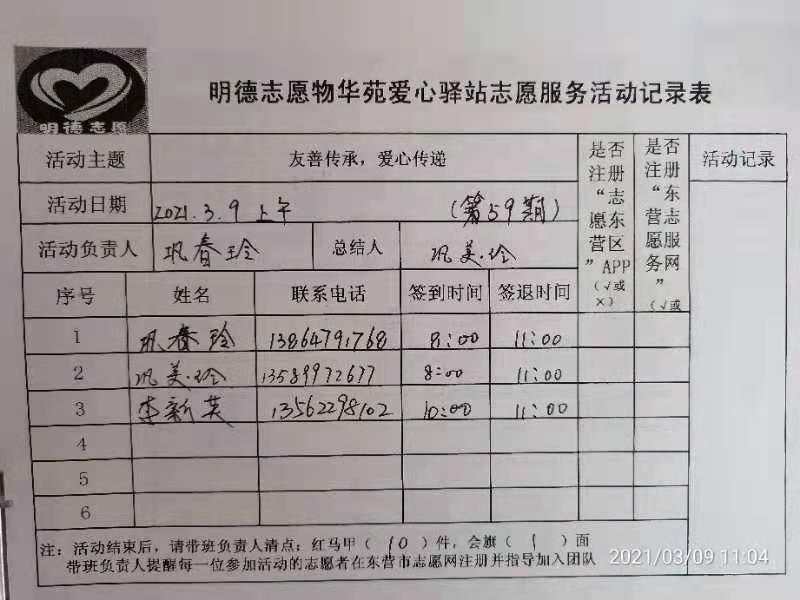 明德志愿
明德志愿物华苑爱心驿站志愿服务活动记录表
活动主题 友善传承，爱心传递 是否注册“志愿东营区”APP（√或×） 是否注册“东营志愿服务网”（√或 活动记录
活动日期 2021.3.9 上午 （第59期）
活动负责人 巩春玲 总结人 巩美玲
序号 姓名 联系电话 签到时间 签退时间
1 巩春玲 13864791768 8:00 11:00
2 巩美玲 13589972677 8:00 11:00
3 李新英 13562298102 10:00 11:00
4
5
6
注：活动结束后，请带班负责人清点：红马甲（10）件，会旗（1）面
带班负责人提醒每一位参加活动的志愿者在东营市志愿网注册并指导加入团队
2021/03/09 11:04